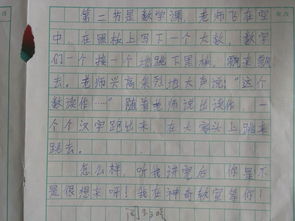 第二节是数学课，老师飞在空
中，在黑板上写下一个大数，数字
们一个接一个地跳下黑板，跑来跑
去。老师兴高采烈地大声说：“这个
数读作…”随着老师说出读作，一
个个汉字跑出来，在大家头上蹦来
跳去。
怎么样，听我讲完后，你是不
是很想去呀！我在神奇教室等你！